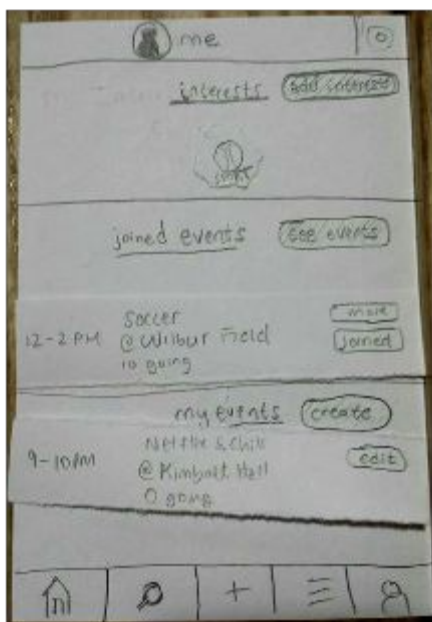 me
interests add interest
sport
joined events see events
12-2 PM Soccer more
@ Wilbur Field joined
10 going
my events create
9-10PM Netflix & Chill edit
@ Kimball Hall
0 going